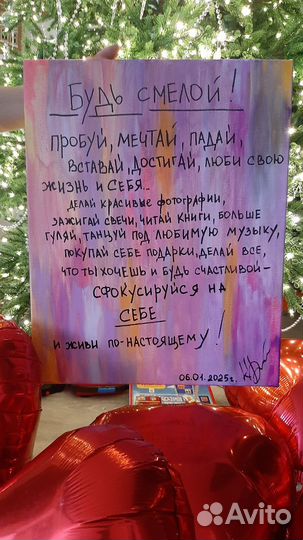 Будь смелой!
Пробуй, мечтай, падай,
вставай, достигай, люби свою
жизнь и себя..
делай красивые фотографии,
зажигай свечи, читай книги, больше
гуляй, танцуй под любимую музыку,
покупай себе подарки, делай все,
что ты хочешь и будь счастливой –
сфокусируйся на
себе
и живи по-настоящему!
06.01.2025г.
Avito